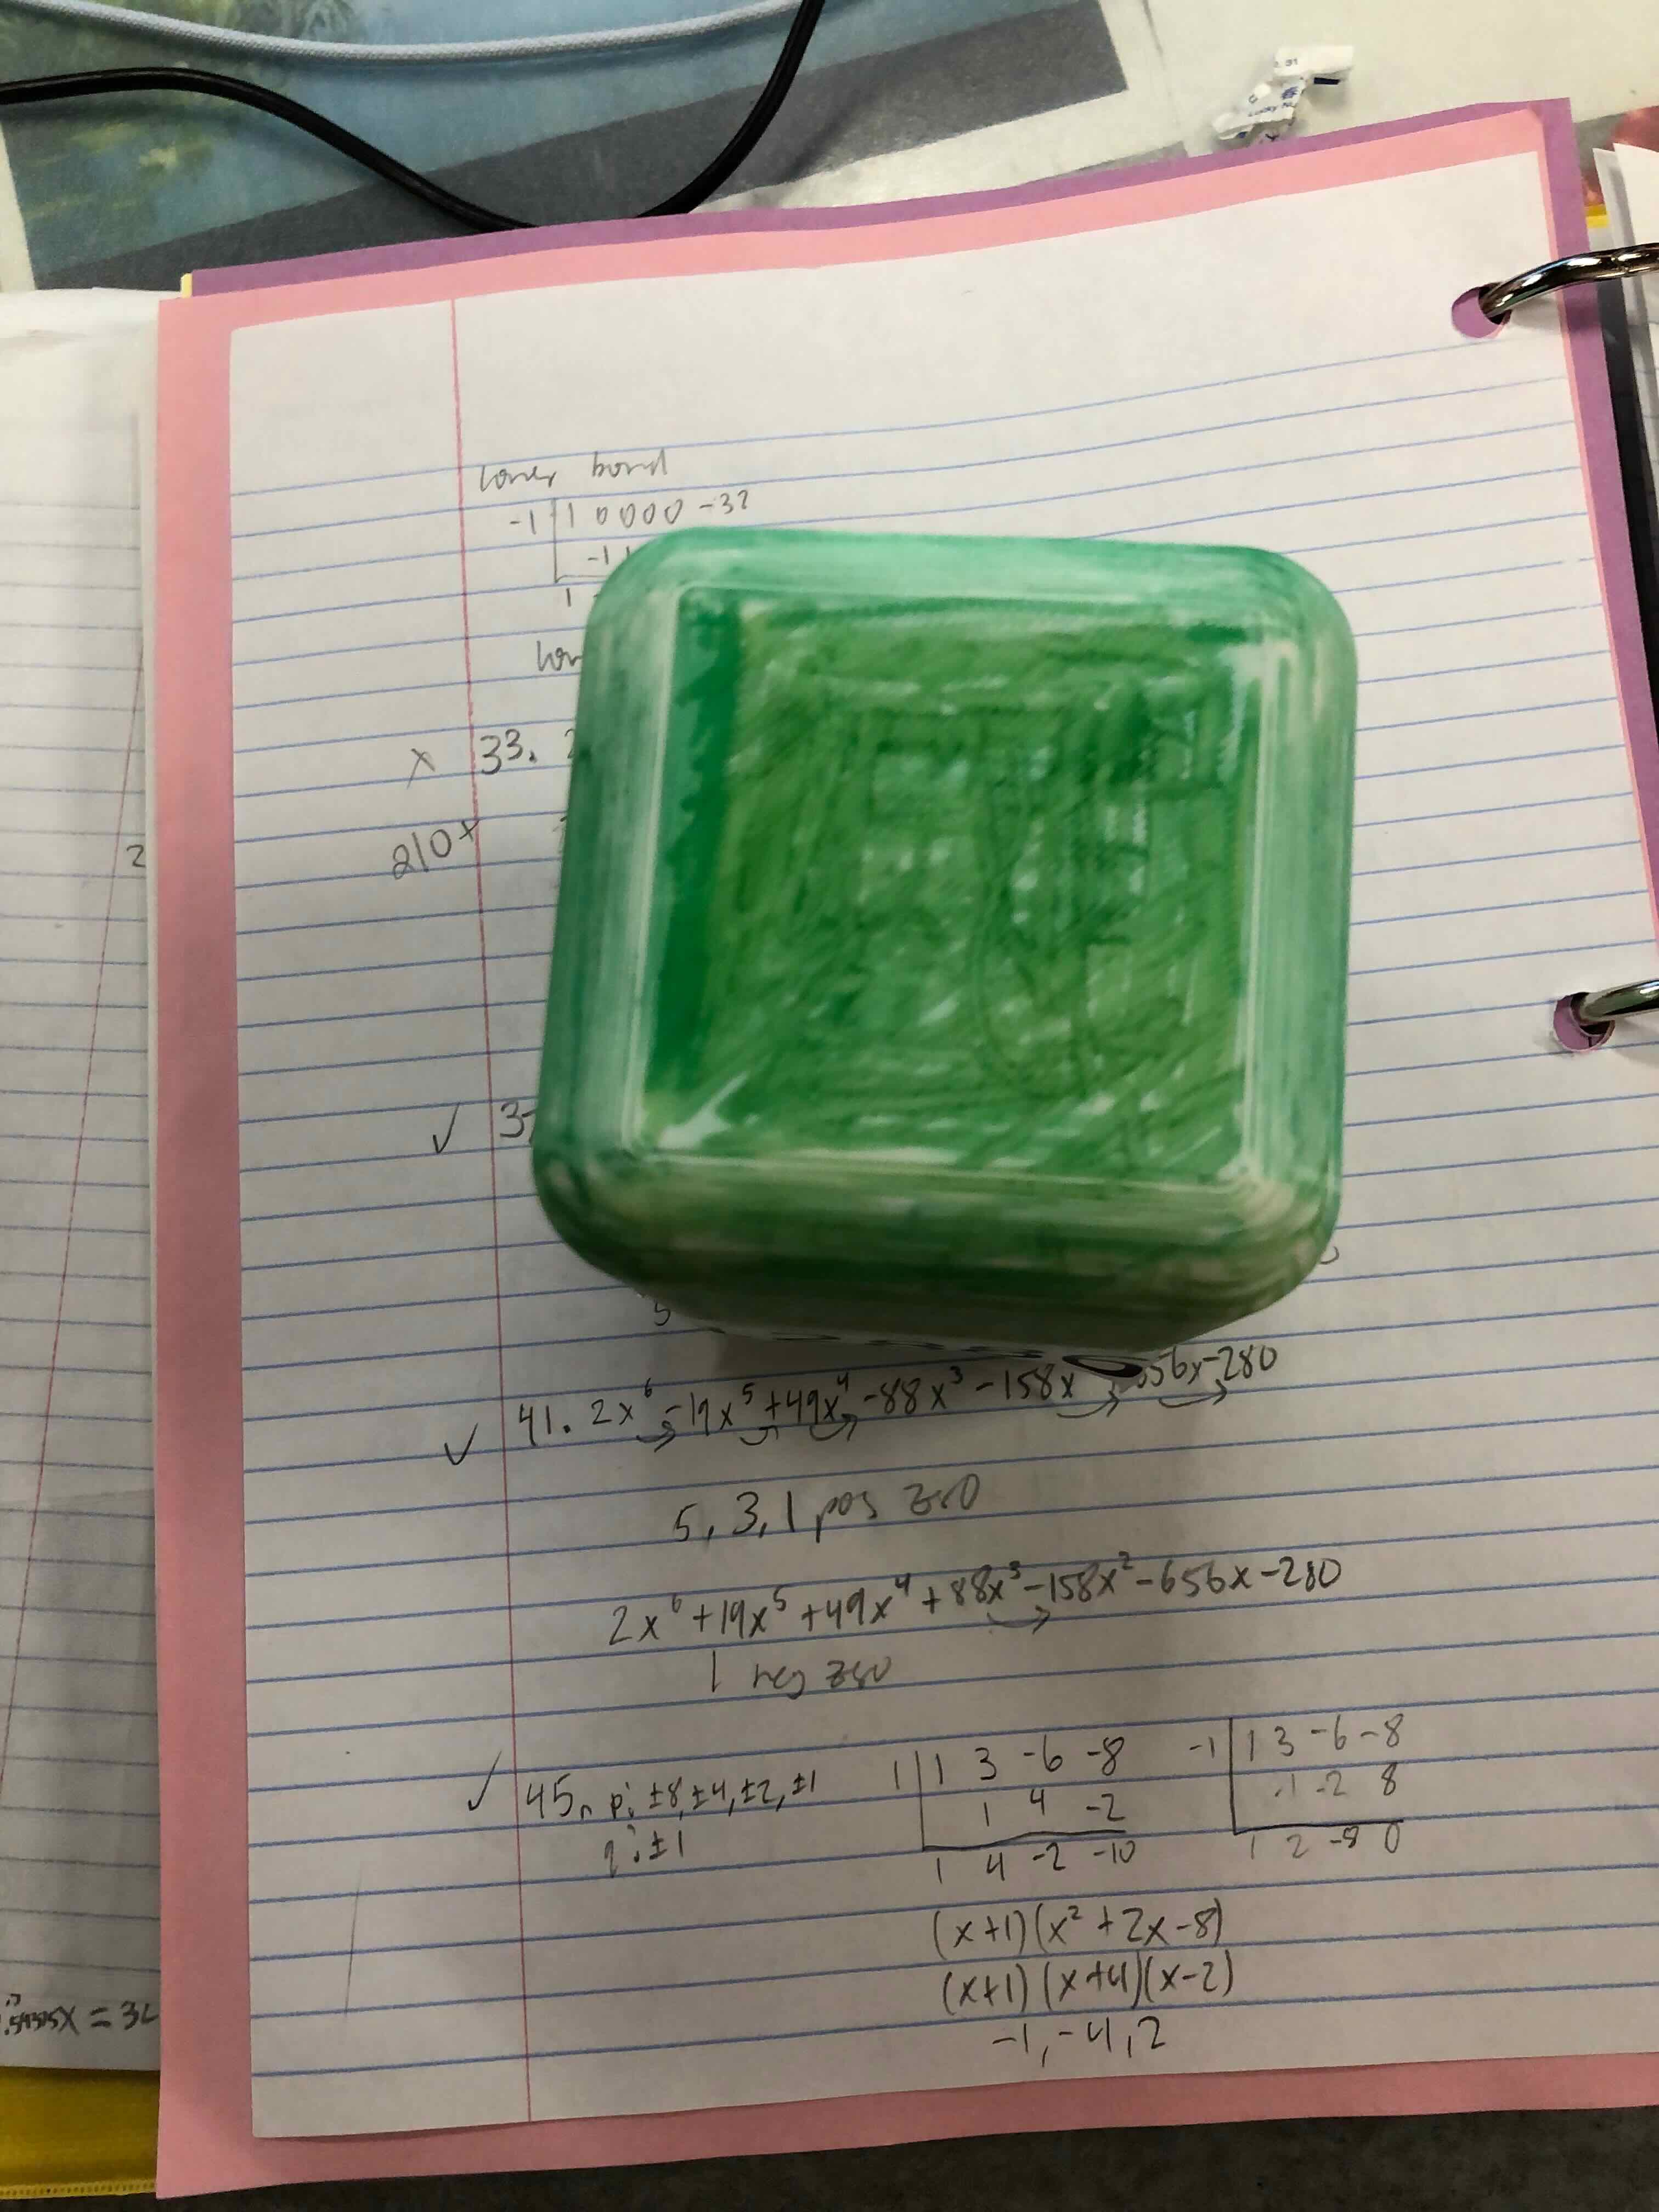 lower bond
-1 | 1 0 0 0 0 -32
-1 1
1
x 33.
210+
✓
5
✓ 41. 2x⁶-19x⁵+49x⁴-88x³-158x 56x-280
5, 3, 1 pos zero
2x⁶+19x⁵+49x⁴+88x³-158x²-656x-280
1 neg zero
✓ 45. p: ±8, ±4, ±2, ±1
q: ±1
1 | 1 3 -6 -8
1 4 -2
1 4 -2 -10
-1 | 1 3 -6 -8
-1 -2 8
1 2 -8 0
(x+1)(x²+2x-8)
(x+1)(x+4)(x-2)
-1, -4, 2
2